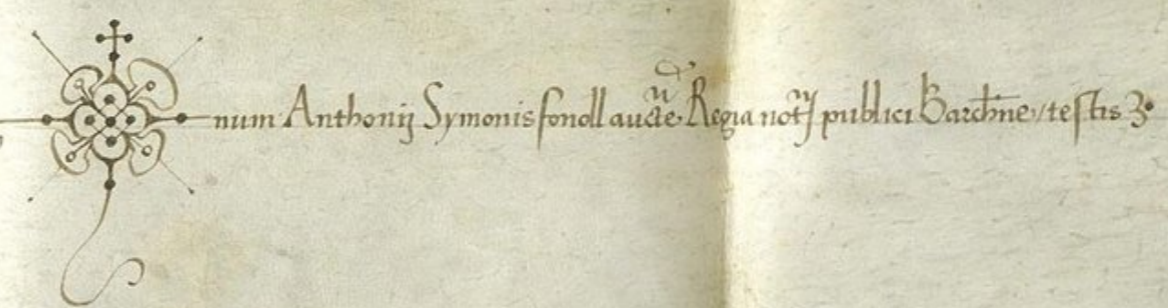 num Anthonij Symonis fonoll aucte Regia notrj publici Barchne / testis